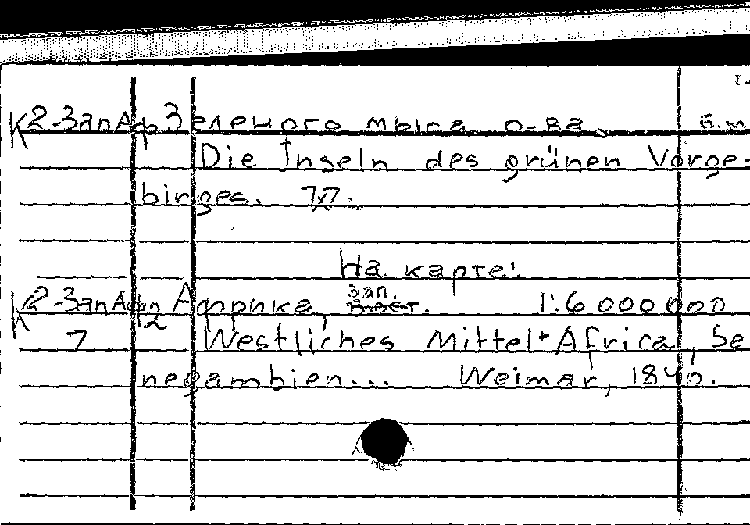 К2-ЗапАф Зеленого мыса о-ва. б.м
Die Inseln des grünen Vorge-
birges. 7x7.
На карте:
К2-ЗапАф Африка, Зап. 1:6 000 000
7 12 Westliches Mittel-Africa, Se
negambien... Weimar, 1840.